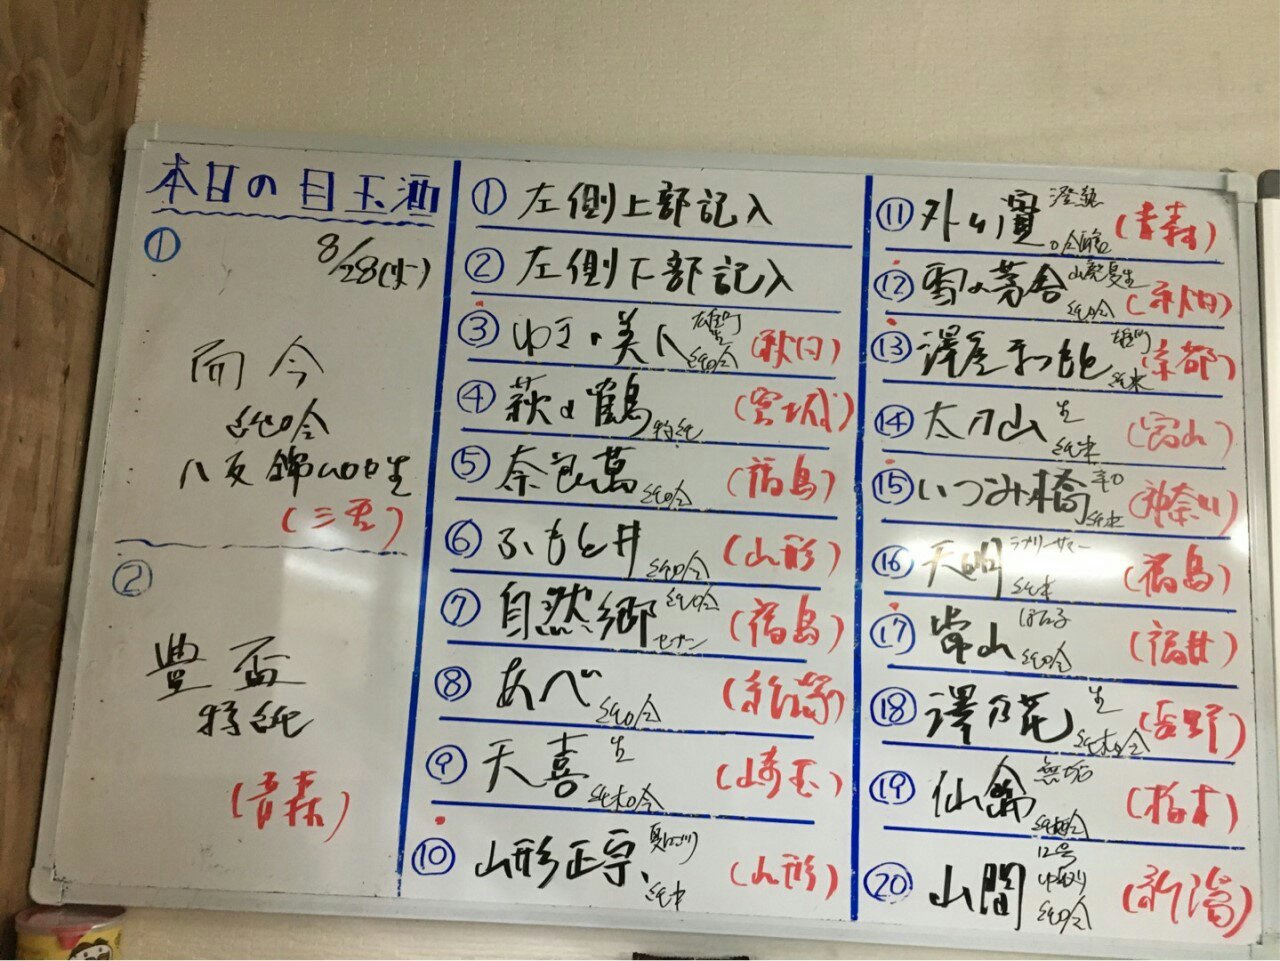 本日の目玉酒
①
8/28(火)
而今
純吟
八反錦 生
(三重)
②
豊盃
特純
(青森)
① 左側上部記入
② 左側下部記入
③ ゆきの美人 雄町 生 純吟 (秋田)
④ 萩の鶴 特純 (宮城)
⑤ 奈良萬 純吟 (福島)
⑥ ふもと井 純吟 (山形)
⑦ 自然郷 純吟 セブン (福島)
⑧ あべ 純吟 (新潟)
⑨ 天喜 生 純吟 (埼玉)
⑩ 山形正宗 純米 (山形)
⑪ 外ヶ濱 (青森)
⑫ 雪の茅舎 山廃 夏生 純吟 (秋田)
⑬ 澤屋まつもと 雄町 純米 (京都)
⑭ 太刀山 生 純米 (富山)
⑮ いづみ橋 辛口 純米 (神奈川)
⑯ 天明 純米 (福島)
⑰ 常山 純吟 (福井)
⑱ 澤乃花 生 (長野)
⑲ 仙禽 無垢 (栃木)
⑳ 山間 12号 純吟 (新潟)